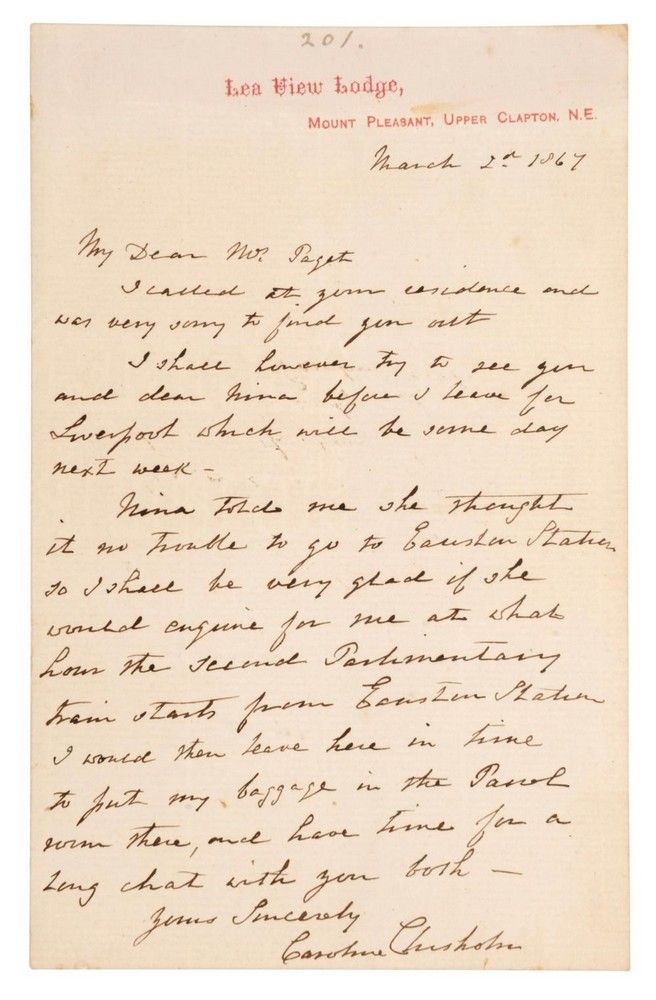 201.
Lea View Lodge,
MOUNT PLEASANT, UPPER CLAPTON. N.E.
March 2nd 1867
My Dear Mrs. Paget
I called at your residence and
was very sorry to find you out
I shall however try to see you
and dear Nina before I leave for
Liverpool which will be some day
next week –
Nina told me she thought
it no trouble to go to Eauston Station
so I shall be very glad if she
would enquire for me at what
hour the second Parlimentary
train starts from Eauston Station
I would then leave here in time
to put my baggage in the Parcel
room there, and have time for a
long chat with you both —
Yours Sincerely
Caroline Chisholm